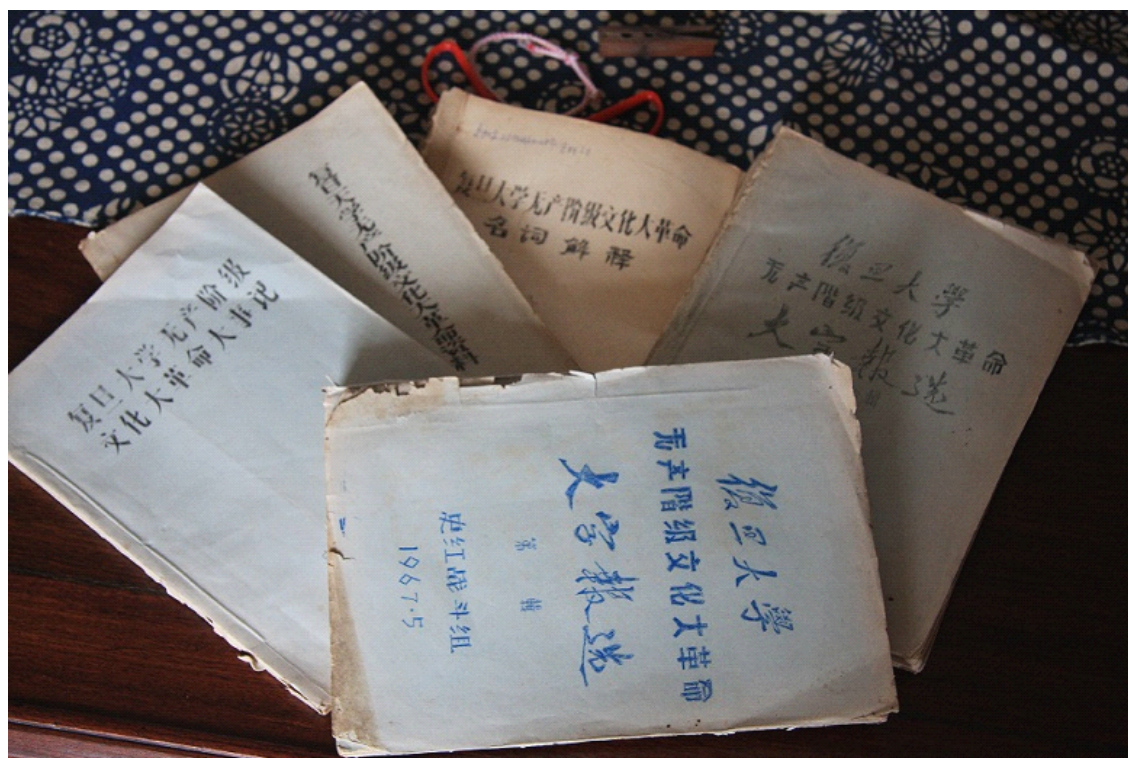 复旦大学无产阶级
文化大革命大事记
复旦大学无产阶级文化大革命
复旦大学无产阶级文化大革命
名词解释
復旦大学
无产階级文化大革命
大字报选
復旦大學
无产階级文化大革命
大字报选
第 辑
史红战斗组
1967.5